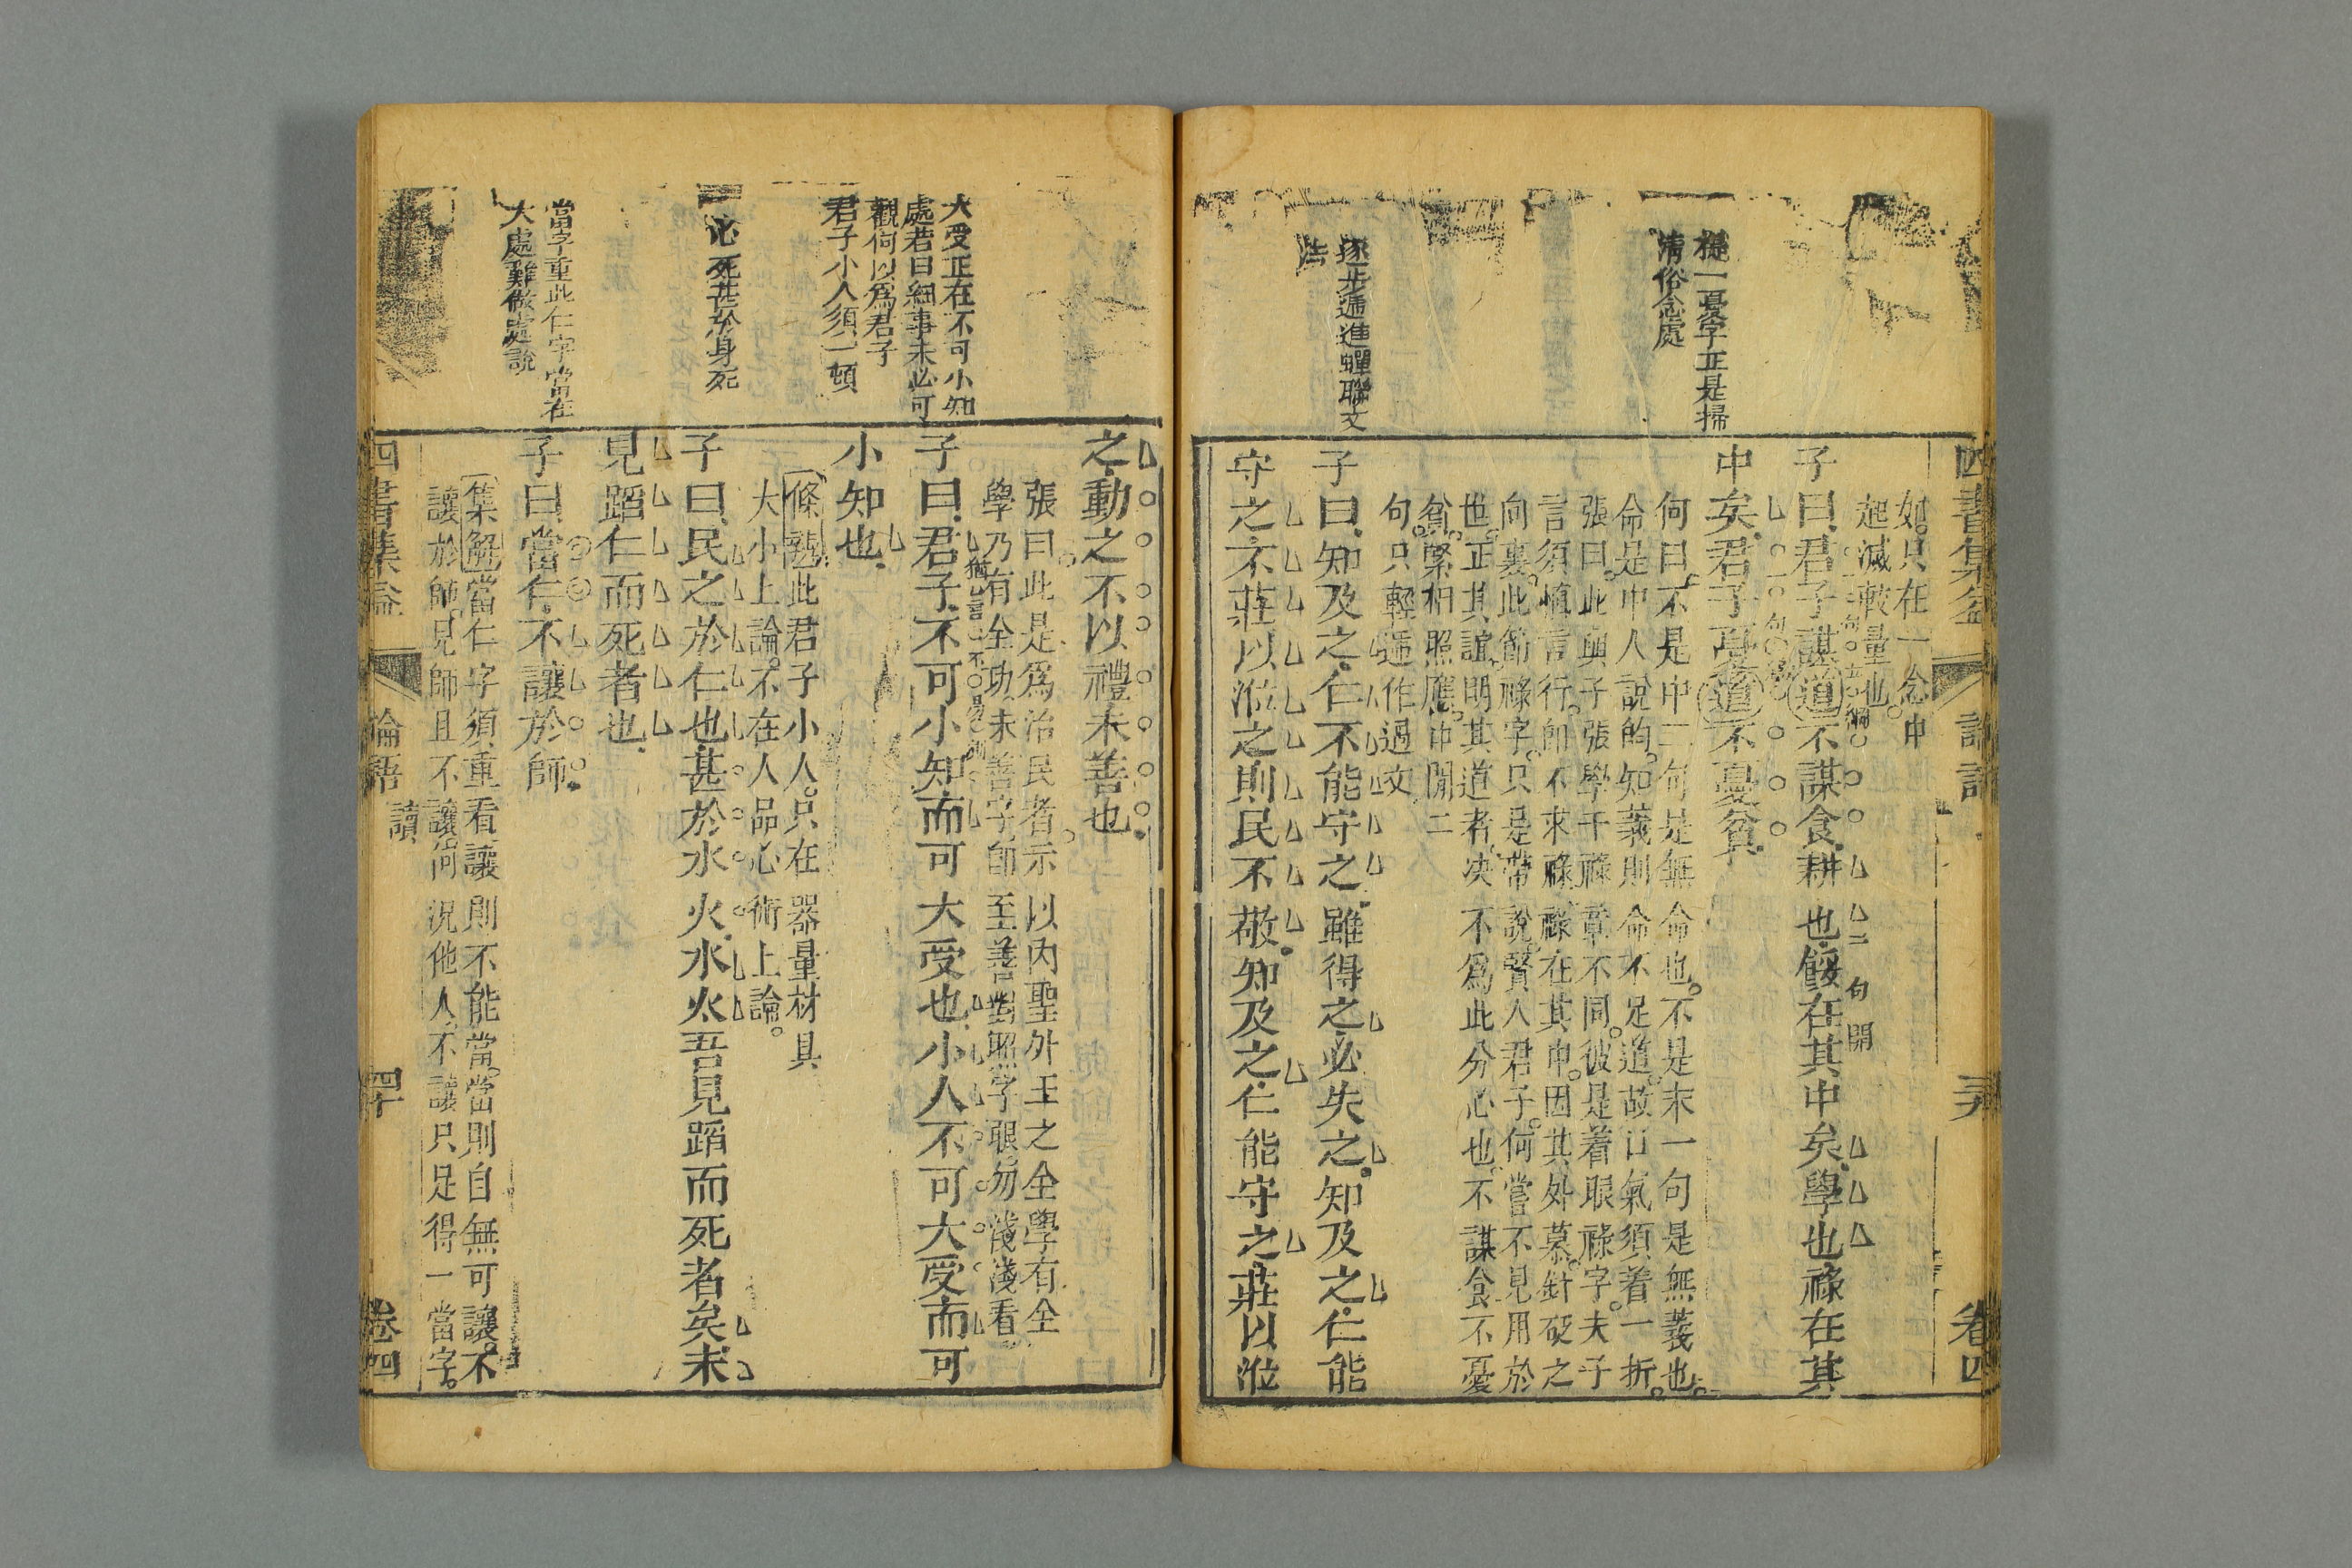 提一憂字正是掃
清俗念處
逐步逓進蟬聯文
法
四書集益
卷四
如只在一念中
起滅較量也
子曰君子謀道不謀食耕也餒在其中矣學也祿在其
中矣君子憂道不憂貧
何曰不是中二句是無命也不是末一句是無義也
命是中人說的知義則命不足道故口氣須着一折
張曰此與子張學干祿章不同彼是着眼祿字夫子
言須慎言行卽不求祿祿在其中因其外慕針砭之
向裏此節祿字只是帶說賢人君子何嘗不見用於
世正其誼明其道者决不爲此分心也不謀食不憂
貧緊相照應中間二
句只輕逓作過文
子曰知及之仁不能守之雖得之必失之知及之仁能
守之不莊以涖之則民不敬知及之仁能守之莊以涖
大受正在不可小知
處若曰細事未必可
觀何以爲君子
君子小人須一頓
必死甚於身死
當字重此仁字當在
大處難做處說
之動之不以禮未善也
張曰此是爲治民者示以內聖外王之全學有全
學乃有全功未善字卽至善對照字眼勿淺淺看
子曰君子不可小知而可大受也小人不可大受而可
小知也
條辨此君子小人只在器量材具
大小上論不在人品心術上論
子曰民之於仁也甚於水火水火吾見蹈而死者矣未
見蹈仁而死者也
子曰當仁不讓於師
集解當仁字須重看讓則不能當當則自無可讓不
讓於師見師且不讓尚況他人不讓只足得一當字
四書集益
論語
讀
四十
卷四